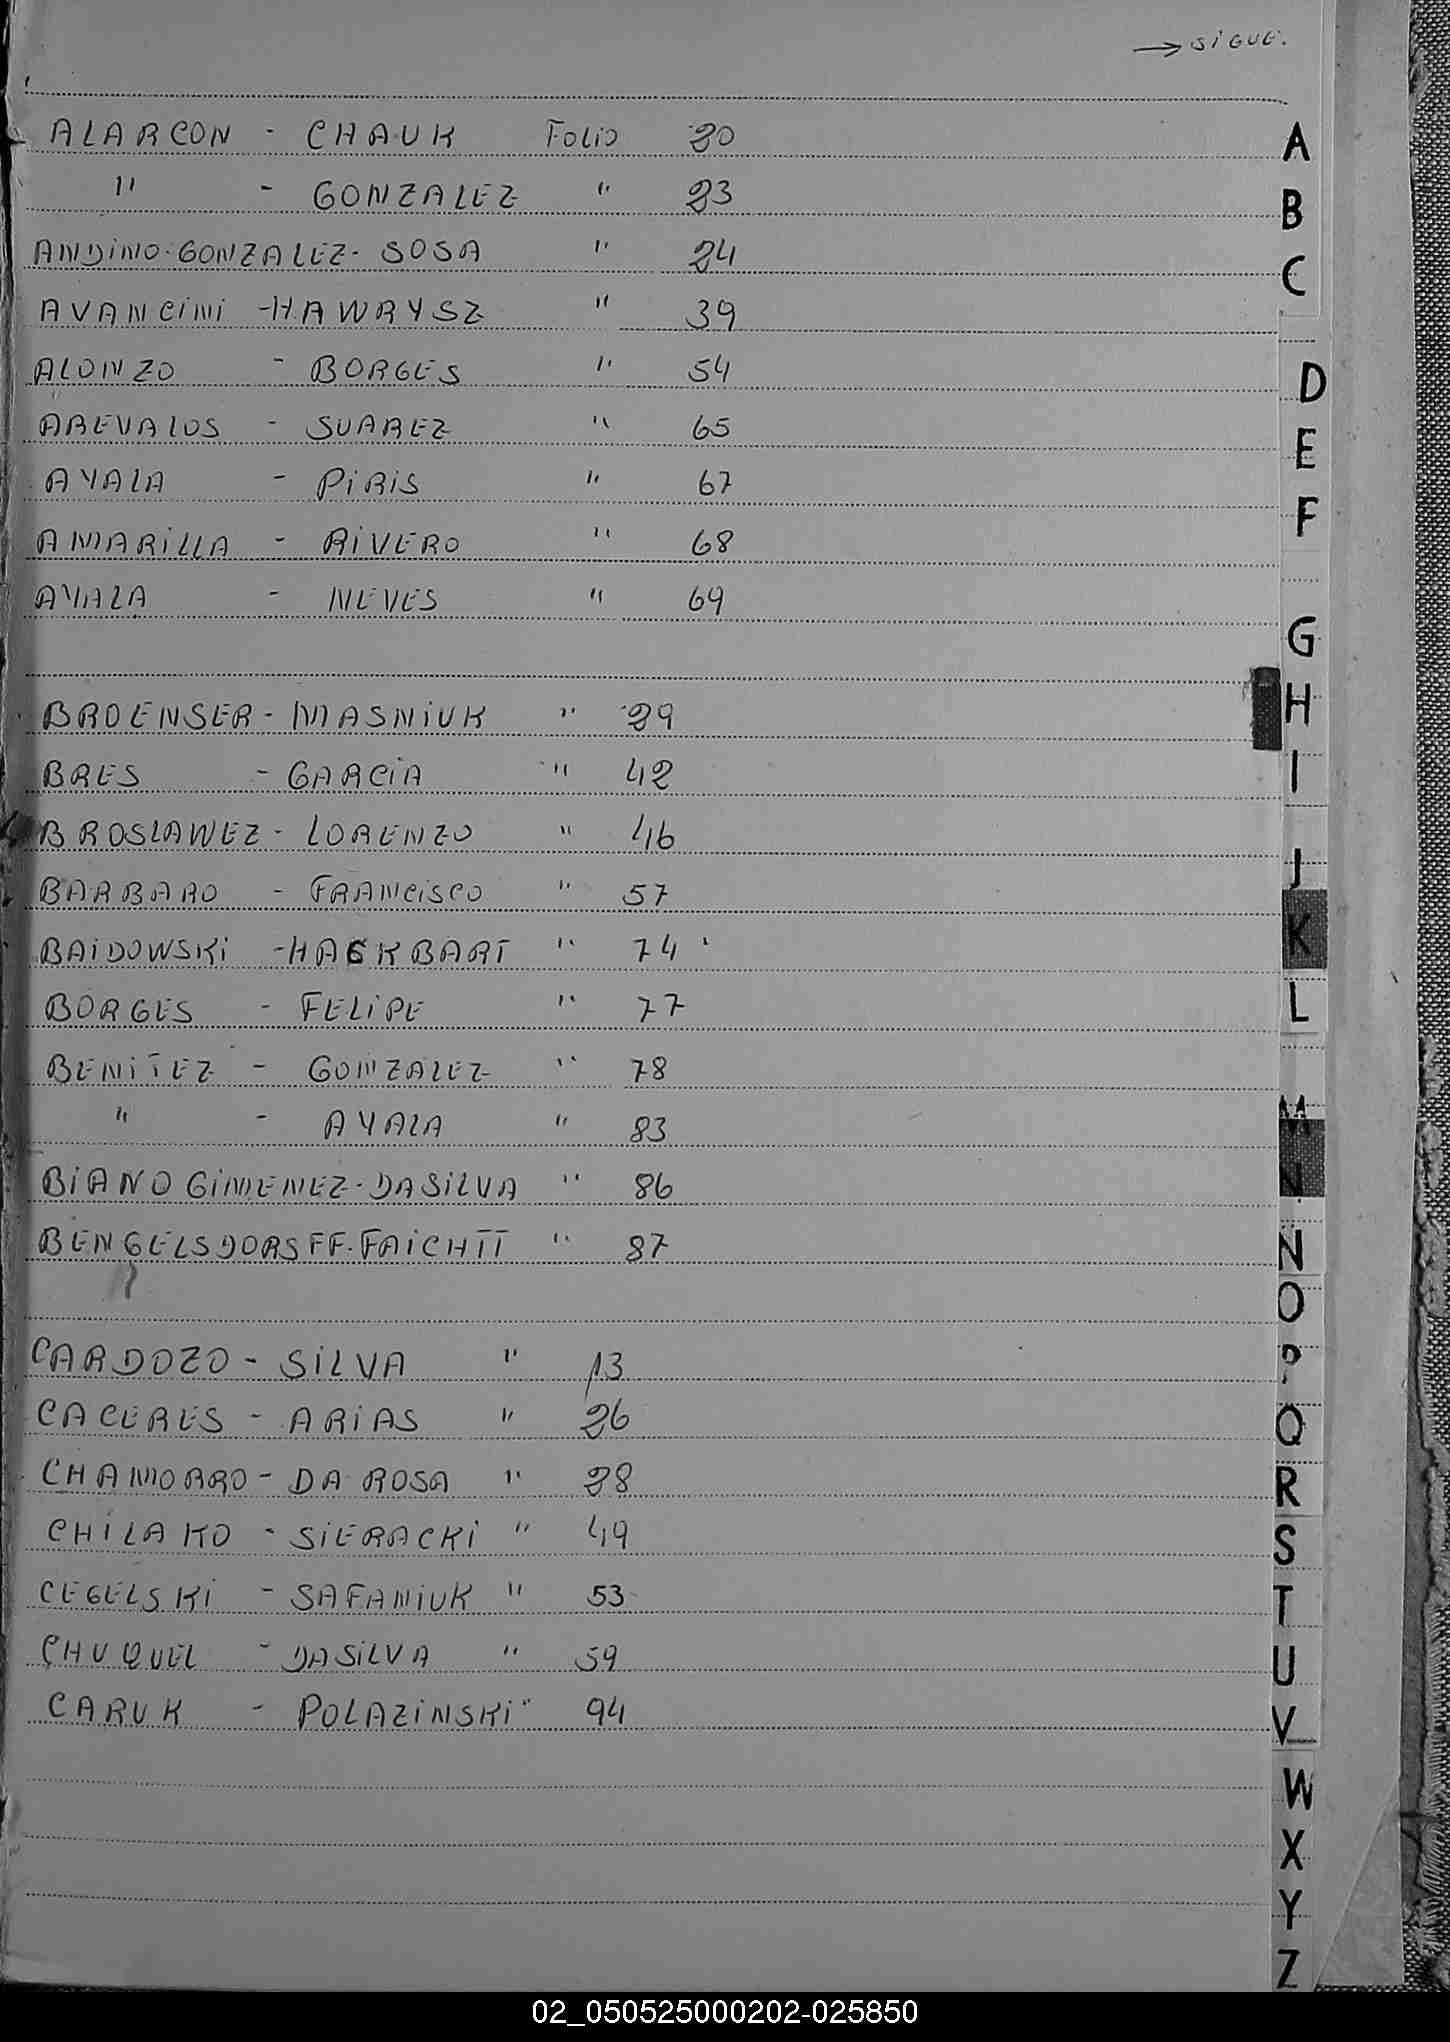 → SIGUE.
ALARCON - CHAUK Folio 20
" - GONZALEZ " 23
ANDINO-GONZALEZ-SOSA " 24
AVANCINI - HAWRYSZ " 39
ALONZO - BORGES " 54
AREVALOS - SUAREZ " 65
AYALA - PIRIS " 67
AMARILLA - RIVERO " 68
AYALA - NEVES " 69
BROENSER - MASNIUK " 29
BRES - GARCIA " 42
BROSLAWEZ - LORENZO " 46
BARBARO - FRANCISCO " 57
BAIDOWSKI - HACKBART " 74
BORGES - FELIPE " 77
BENITEZ - GONZALEZ " 78
" - AYALA " 83
BIANO GIMENEZ - DASILVA " 86
BENGELSDORSFF - FAICHTT " 87
CARDOZO - SILVA " 13
CACERES - ARIAS " 26
CHAMORRO - DA ROSA " 28
CHILAKO - SIERACKI " 49
CEGELSKI - SAFANIUK " 53
CHUQUEL - DASILVA " 59
CARUK - POLAZINSKI " 94
A
B
C
D
E
F
G
H
I
J
K
L
M
N
Ñ
O
P
Q
R
S
T
U
V
W
X
Y
Z
02_050525000202-025850